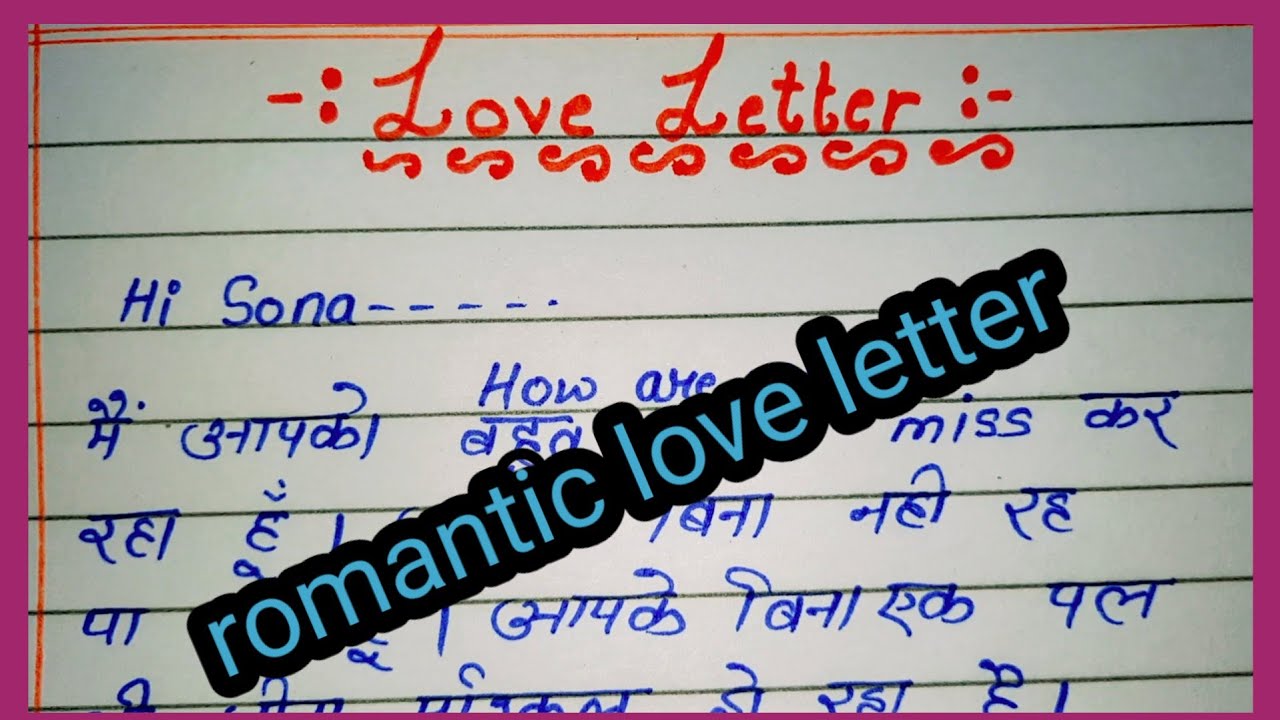 -: Love Letter :-
Hi Sona - - - - - .
How are
मैं आपको बहुत miss कर
रहा हूँ। बिना नही रह
पा । आपके बिना एक पल
रहा है।
romantic love letter